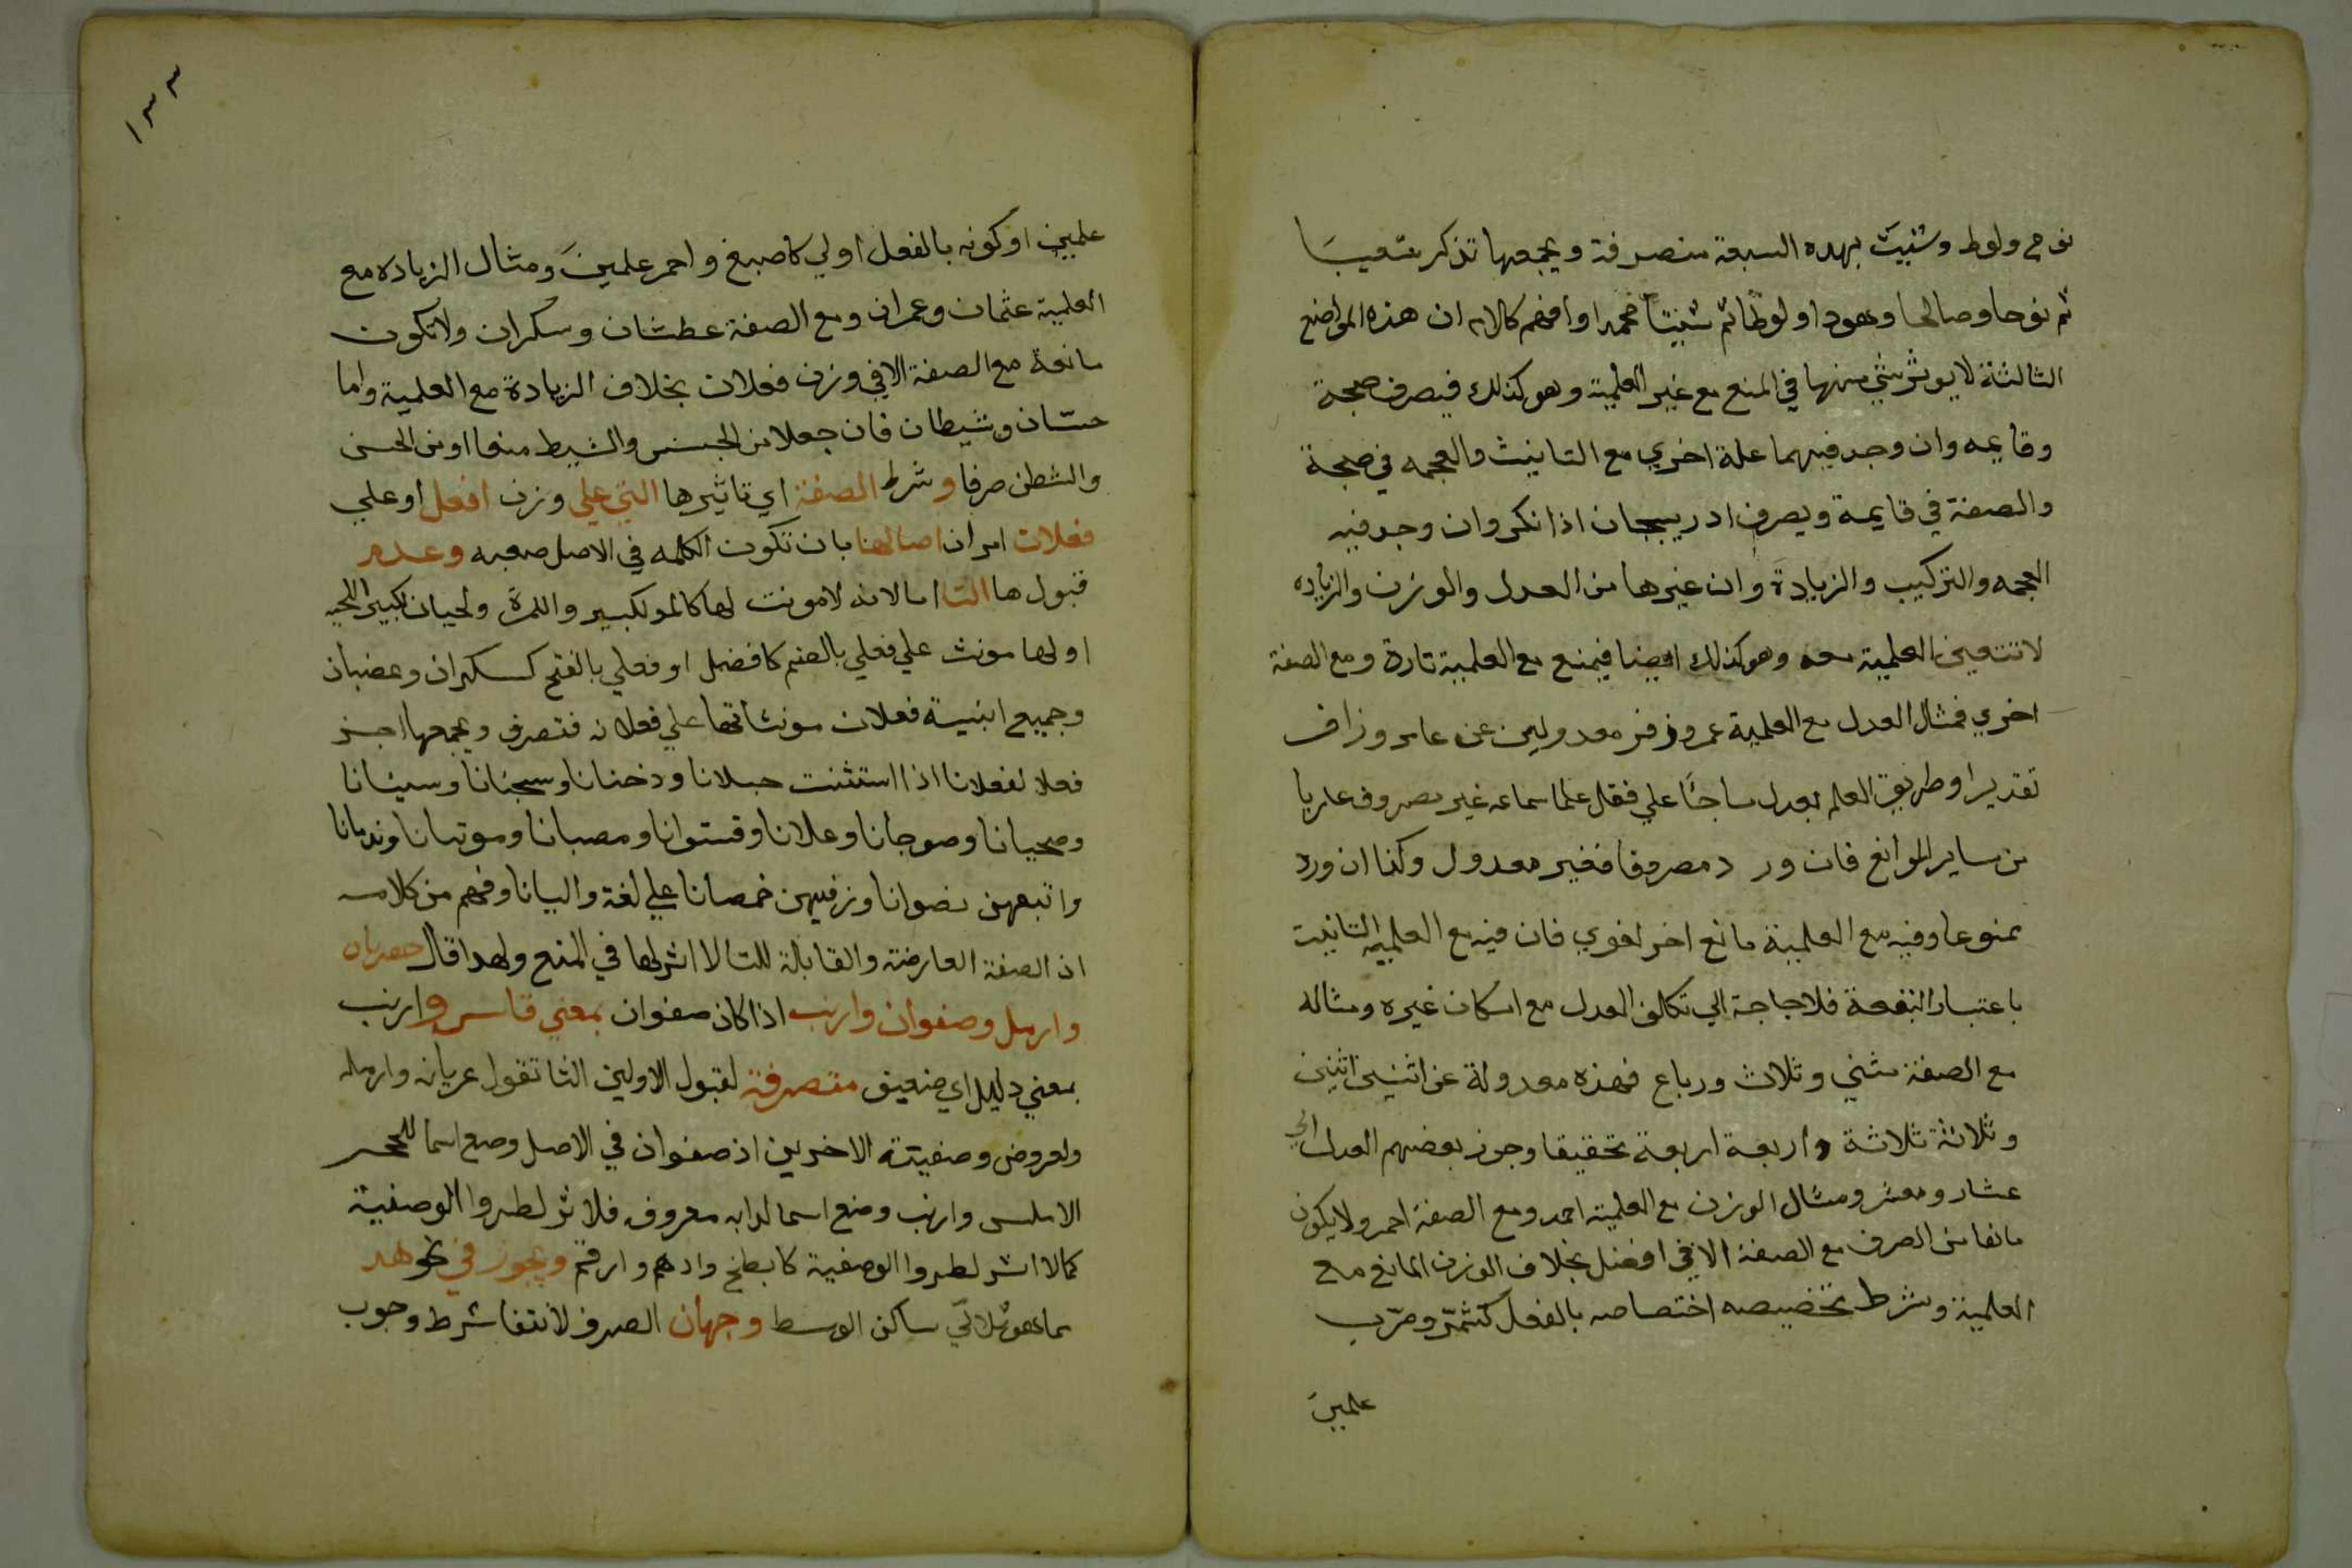 نوح ولوط وشيث بهده السبعة منصرفة ويجمعها تذكر شعيبا
ثم نوحا وصالحا وهودا ولوطا ثم شيثا محمدا وافهم كلامه ان هذه المواضع
الثالثة لا يوثر شي منها في المنع مع غير العلمية وهو كذلك فيصرف صنجة
وقايمه وان وجد فيهما علة اخري مع التانيث والعجمه في صنجة
والصفة في قايمة ويصرف ادربيجان اذا نكر وان وجد فيه
العجمه والتركيب والزيادة وان غيرها من العدل والوزن والزياده
لا تتعين العلمية معه وهو كذلك ايضا فيمنع مع العلمية تارة ومع الصفة
اخري فمثال العدل مع العلمية عمر وزفر معدولين عن عامر وزافر
تقديرا وطريق العلم بعدل ما جا علي فعل علما سماعه غير مصروف عاريا
من ساير الموانع فان ورد مصروفا فغير معدول وكذا ان ورد
ممنوعا وفيه مع العلمية مانع اخر لغوي فان فيه مع العلميه التانيث
باعتبار البقعة فلا حاجة الي تكلف العدل مع امكان غيره ومثاله
مع الصفة مثني وثلاث ورباع فهذه معدولة عن اثنين اثنين
وثلاثة ثلاثة واربعة اربعة تحقيقا وجوز بعضهم العدل الي
عشار ومعشر ومثال الوزن مع العلمية احمد ومع الصفة احمر ولا يكون
مانعا من الصرف مع الصفة الا في افعل بخلاف الوزن المانع مع
العلمية وشرط تخصيصه اختصاصه بالفعل كشمّر وضرّب
علمين
١٣٣
علمين او كونه بالفعل اولي كاصبع واحمر علمينَ ومثال الزياده مع
العلمية عثمان وعمران ومع الصفة عطشان وسكران ولا تكون
مانعة مع الصفة الا في وزن فعلان بخلاف الزيادة مع العلمية واما
حسّان وشيطان فان جعلا من الحس والشيط منعا او من الحسن
والشطن صرفا وشرط الصفة اي تاثيرها التي علي وزن افعل او علي
فعلان امران اصالتها بان تكون الكلمه في الاصل صفه وعدم
قبولها التا اما لانه لا مونث لها كالمر لكبير والمرة ولحيان لكبير اللحيه
او لها مونث علي فعلي بالضم كافضل او فعلي بالفتح كسكران وغضبان
وجميع ابنية فعلان مونثاتها علي فعلانه فتصرف ويجمعها اجز
فعلا لفعلانا اذا استثنيت حبلانا ودخنانا وسخنانا وسيفانا
وصحيانا وصوجانا وعلانا وقشوانا ومصانا وموتانا وندمانا
واتبعهن نصرانا وزد فيهن خمصانا علي لغة واليانا وفهم من كلامه
ان الصفة العارضة والقابلة للتا لا اثر لها في المنع ولهدا قال فعريان
وارمل وصفوان وارنب اذا كان صفوان بمعني قاس وارنب
بمعني دليل اي ضعيف منصرفة لقبول الاولين التا تقول عريانه وارمله
ولعروض وصفيتة الاخرين اذ صفوان في الاصل وضع اسما للحجر
الاملس وارنب وضع اسما لدابه معروف فلا اثر لطروا الوصفية
كما لا اثر لطروا الوصفية كابطح وادهم وارقم ويجوز في نحو هند
مما هو ثلاثي ساكن الوسط وجهان الصرف لانتفا شرط وجوب